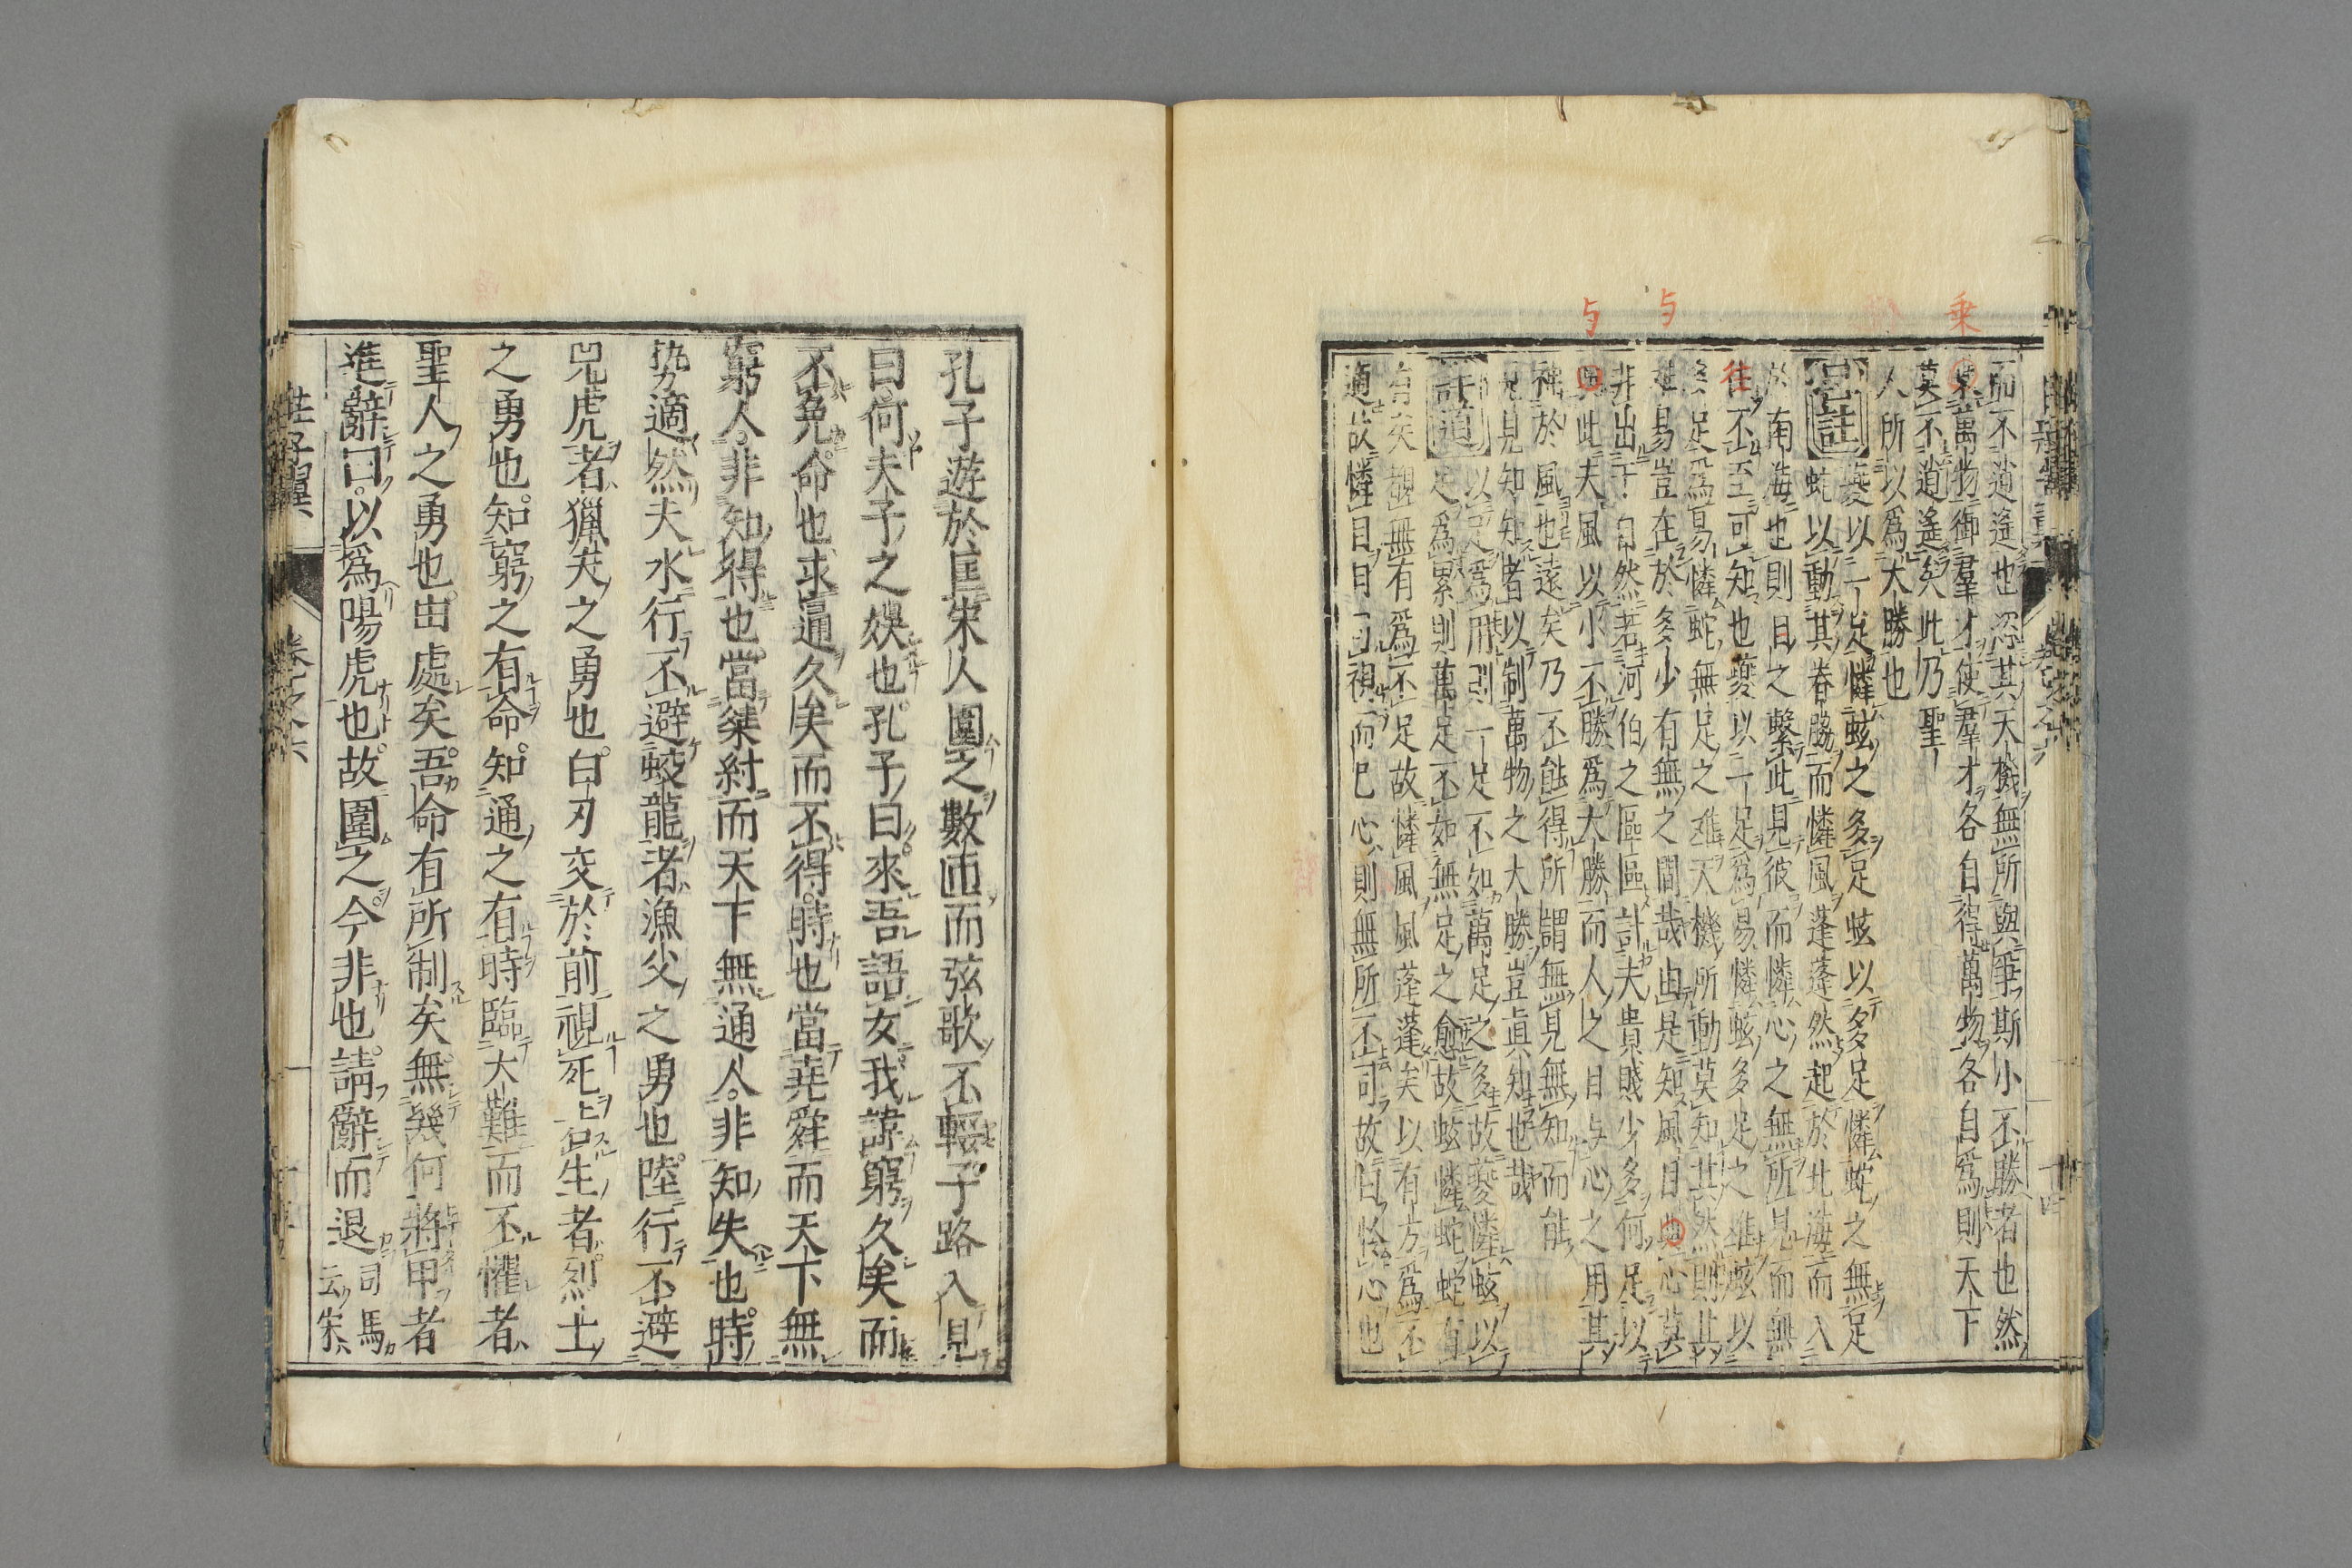 乗
与
与
而不逍遥也恣其天機無所與爭斯小不勝者也然
乗萬物御羣才使羣才各自得萬物各自為則天下
莫不逍遥矣此乃聖
人所以為大勝也
呂註
夔以一足憐蚿之多足蚿以多足憐蛇之無足
蛇以動其脊脇而憐風蓬蓬然起於北海而入
於南海也則目之繫此見彼而憐心之無所見而無
往不至可知也夔以一足為易憐蚿多足之難蚿以
衆足為易憐蛇無足之難天機所動莫知其然則其
難易豈在於多少有無之間哉由是知風目與心莫
非出于自然若河伯之區區計夫貴賤少多何足以
與此夫風以小不勝為大勝而人之目与心之用其
神於風也遠矣乃不能得所謂無見無知而能
見見知知者以制萬物之大勝豈真知也哉
詳道
以足為用則一足不如萬足之多故夔憐蚿以
足為累則萬足不如無足之愈故蚿憐蛇蛇有
有矣觀無有為不足故憐風風蓬蓬矣以有方為不
適故憐目目一視而已心則無所不可故目憐心也
孔子遊於匡宋人圍之數匝而弦歌不輟子路入見
曰何夫子之娛也孔子曰來吾語女我諱窮久矣而
不免命也求通久矣而不得時也當堯舜而天下無
窮人非知得也當桀紂而天下無通人非知失也時
勢適然夫水行不避蛟龍者漁父之勇也陸行不避
兕虎者獵夫之勇也白刃交於前視死若生者烈士
之勇也知窮之有命知通之有時臨大難而不懼者
聖人之勇也由處矣吾命有所制矣無幾何將甲者
進辭曰以爲陽虎也故圍之今非也請辭而退
司馬
云宋
莊子翼
卷之六